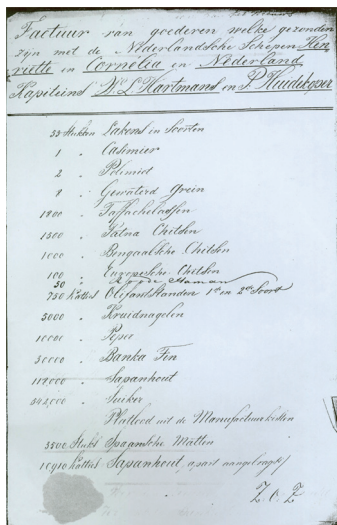 Factuur van goederen welke gezonden
zyn met de Nederlandsche Schepen Hen
riette en Cornelia en Nederland
Kapiteins D. L. Hartmans en P. Huidekoper
53 Stukken Lakens in Soorten
1 " Casimier
2 " Polimiet
8 " Gewaterd Grein
1800 " Taffachelassen
1500 " Patna Chitsen
1000 " Bengaalsche Chitsen
100 " Europesche Chitsen
50 " Roode Hamans
750 Katties Olifantstanden 1e en 2e Soort
5000 " Kruidnagelen
10000 " Peper
30000 " Banka Tin
" Sapanhout
" Suiker
Platlood uit de Manufactuurkisten
3500 Stuks Spaansche Matten
Katties Sapanhout, apart aangebragt